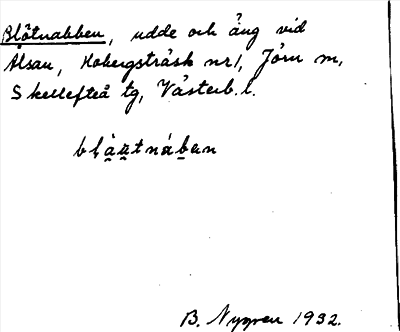 Blötnabben, udde och äng vid
Alsån, Hobergsträsk nr 1, Jörn sn,
Skellefteå tg, Västerb. l.
B. Nygren 1932.